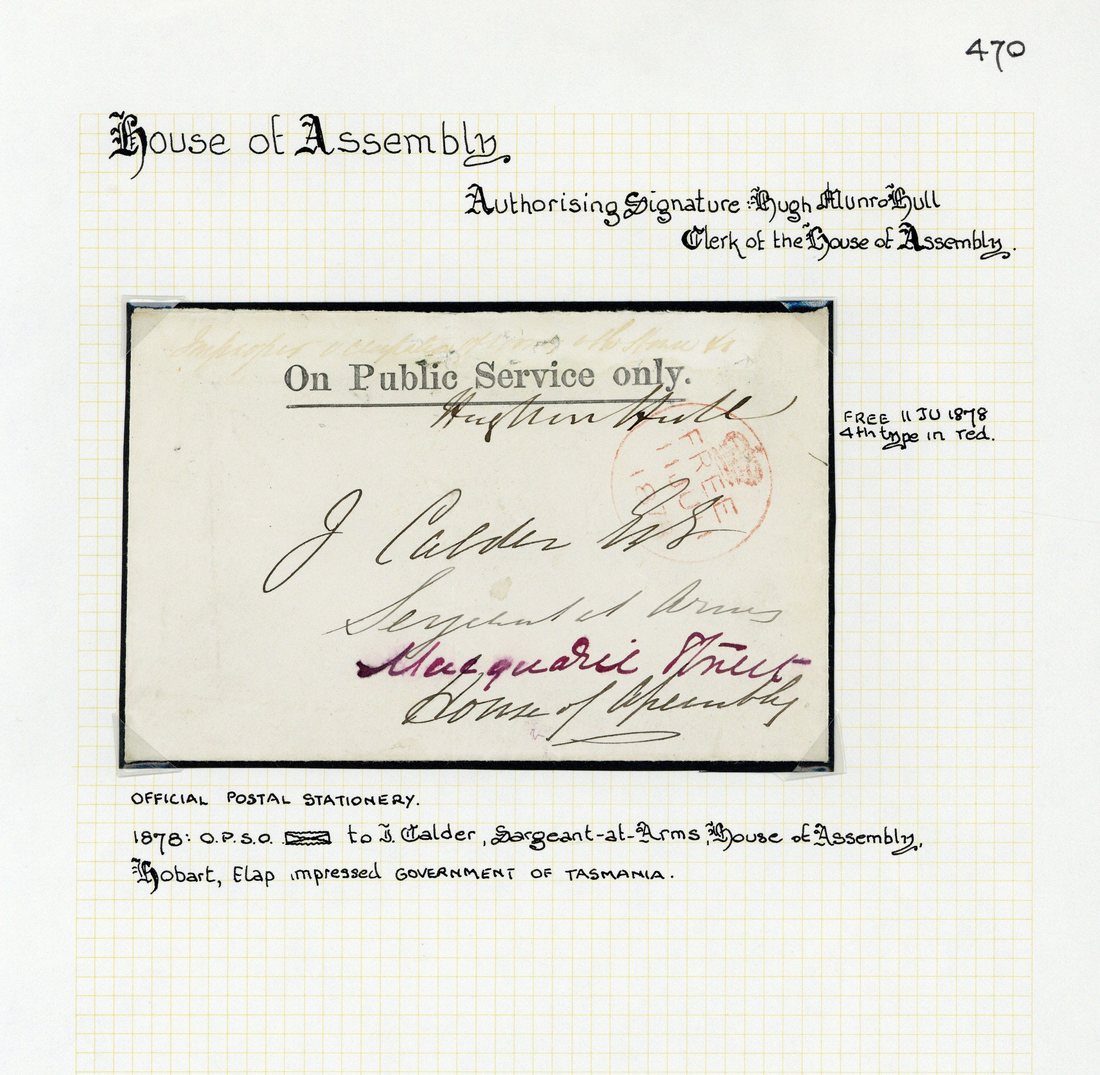 470
House of Assembly
Authorising Signature: Hugh Munro Hull
Clerk of the House of Assembly.
Improper
On Public Service only.
Hugh M Hull
FREE
11 JU
187
FREE 11 JU 1878
4th type in red.
J Calder Esq
Serjeant at Arms
Macquarie Street
House of Assembly
OFFICIAL POSTAL STATIONERY.
1878: O.P.S.O. to J. Calder, Sargeant-at-Arms, House of Assembly,
Hobart, Elap impressed GOVERNMENT OF TASMANIA.